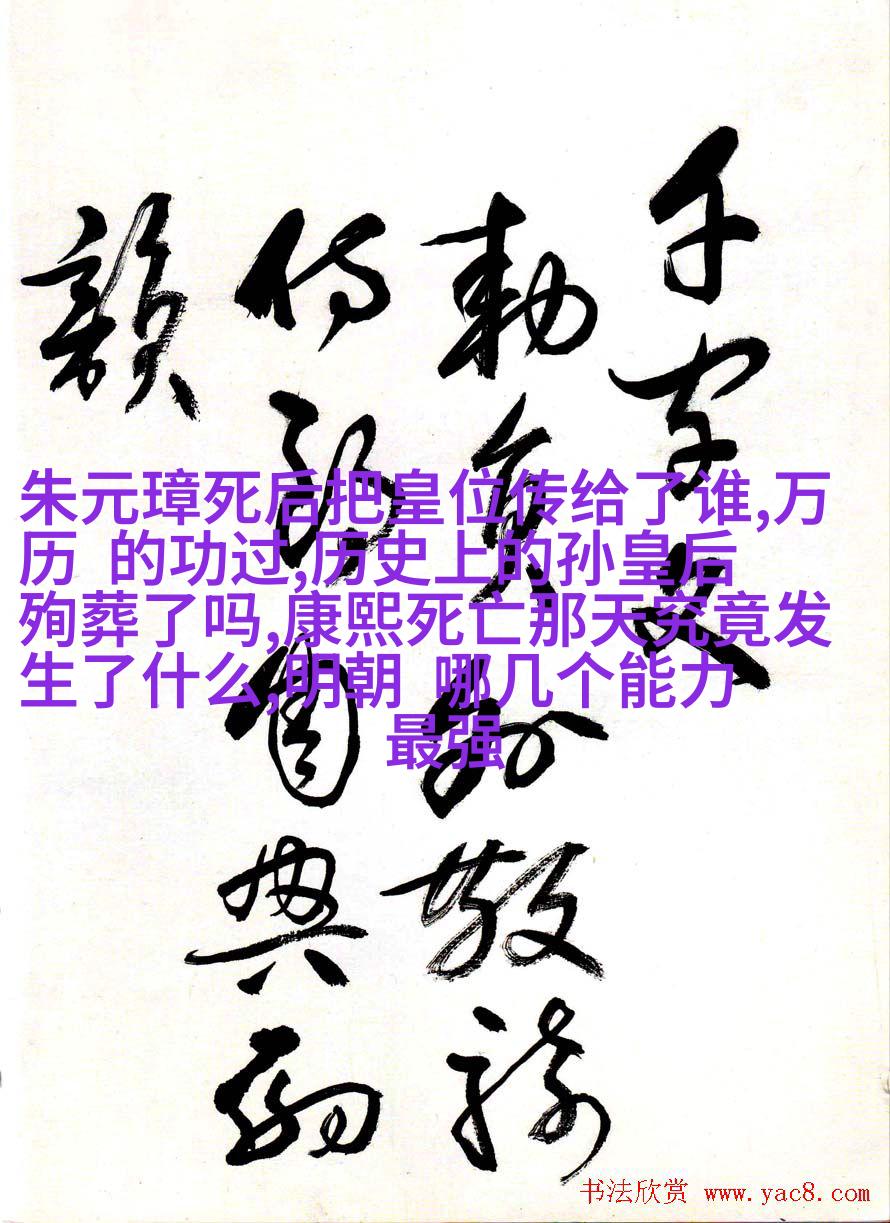 千字文
勅員外散騎
侍郎周興嗣
韻
朱元璋死后把皇位传给了谁,万
历 的功过,历史上的孙皇后
殉葬了吗,康熙死亡那天究竟发
生了什么,明朝 哪几个能力
最强
书法欣赏 www.yac8.com